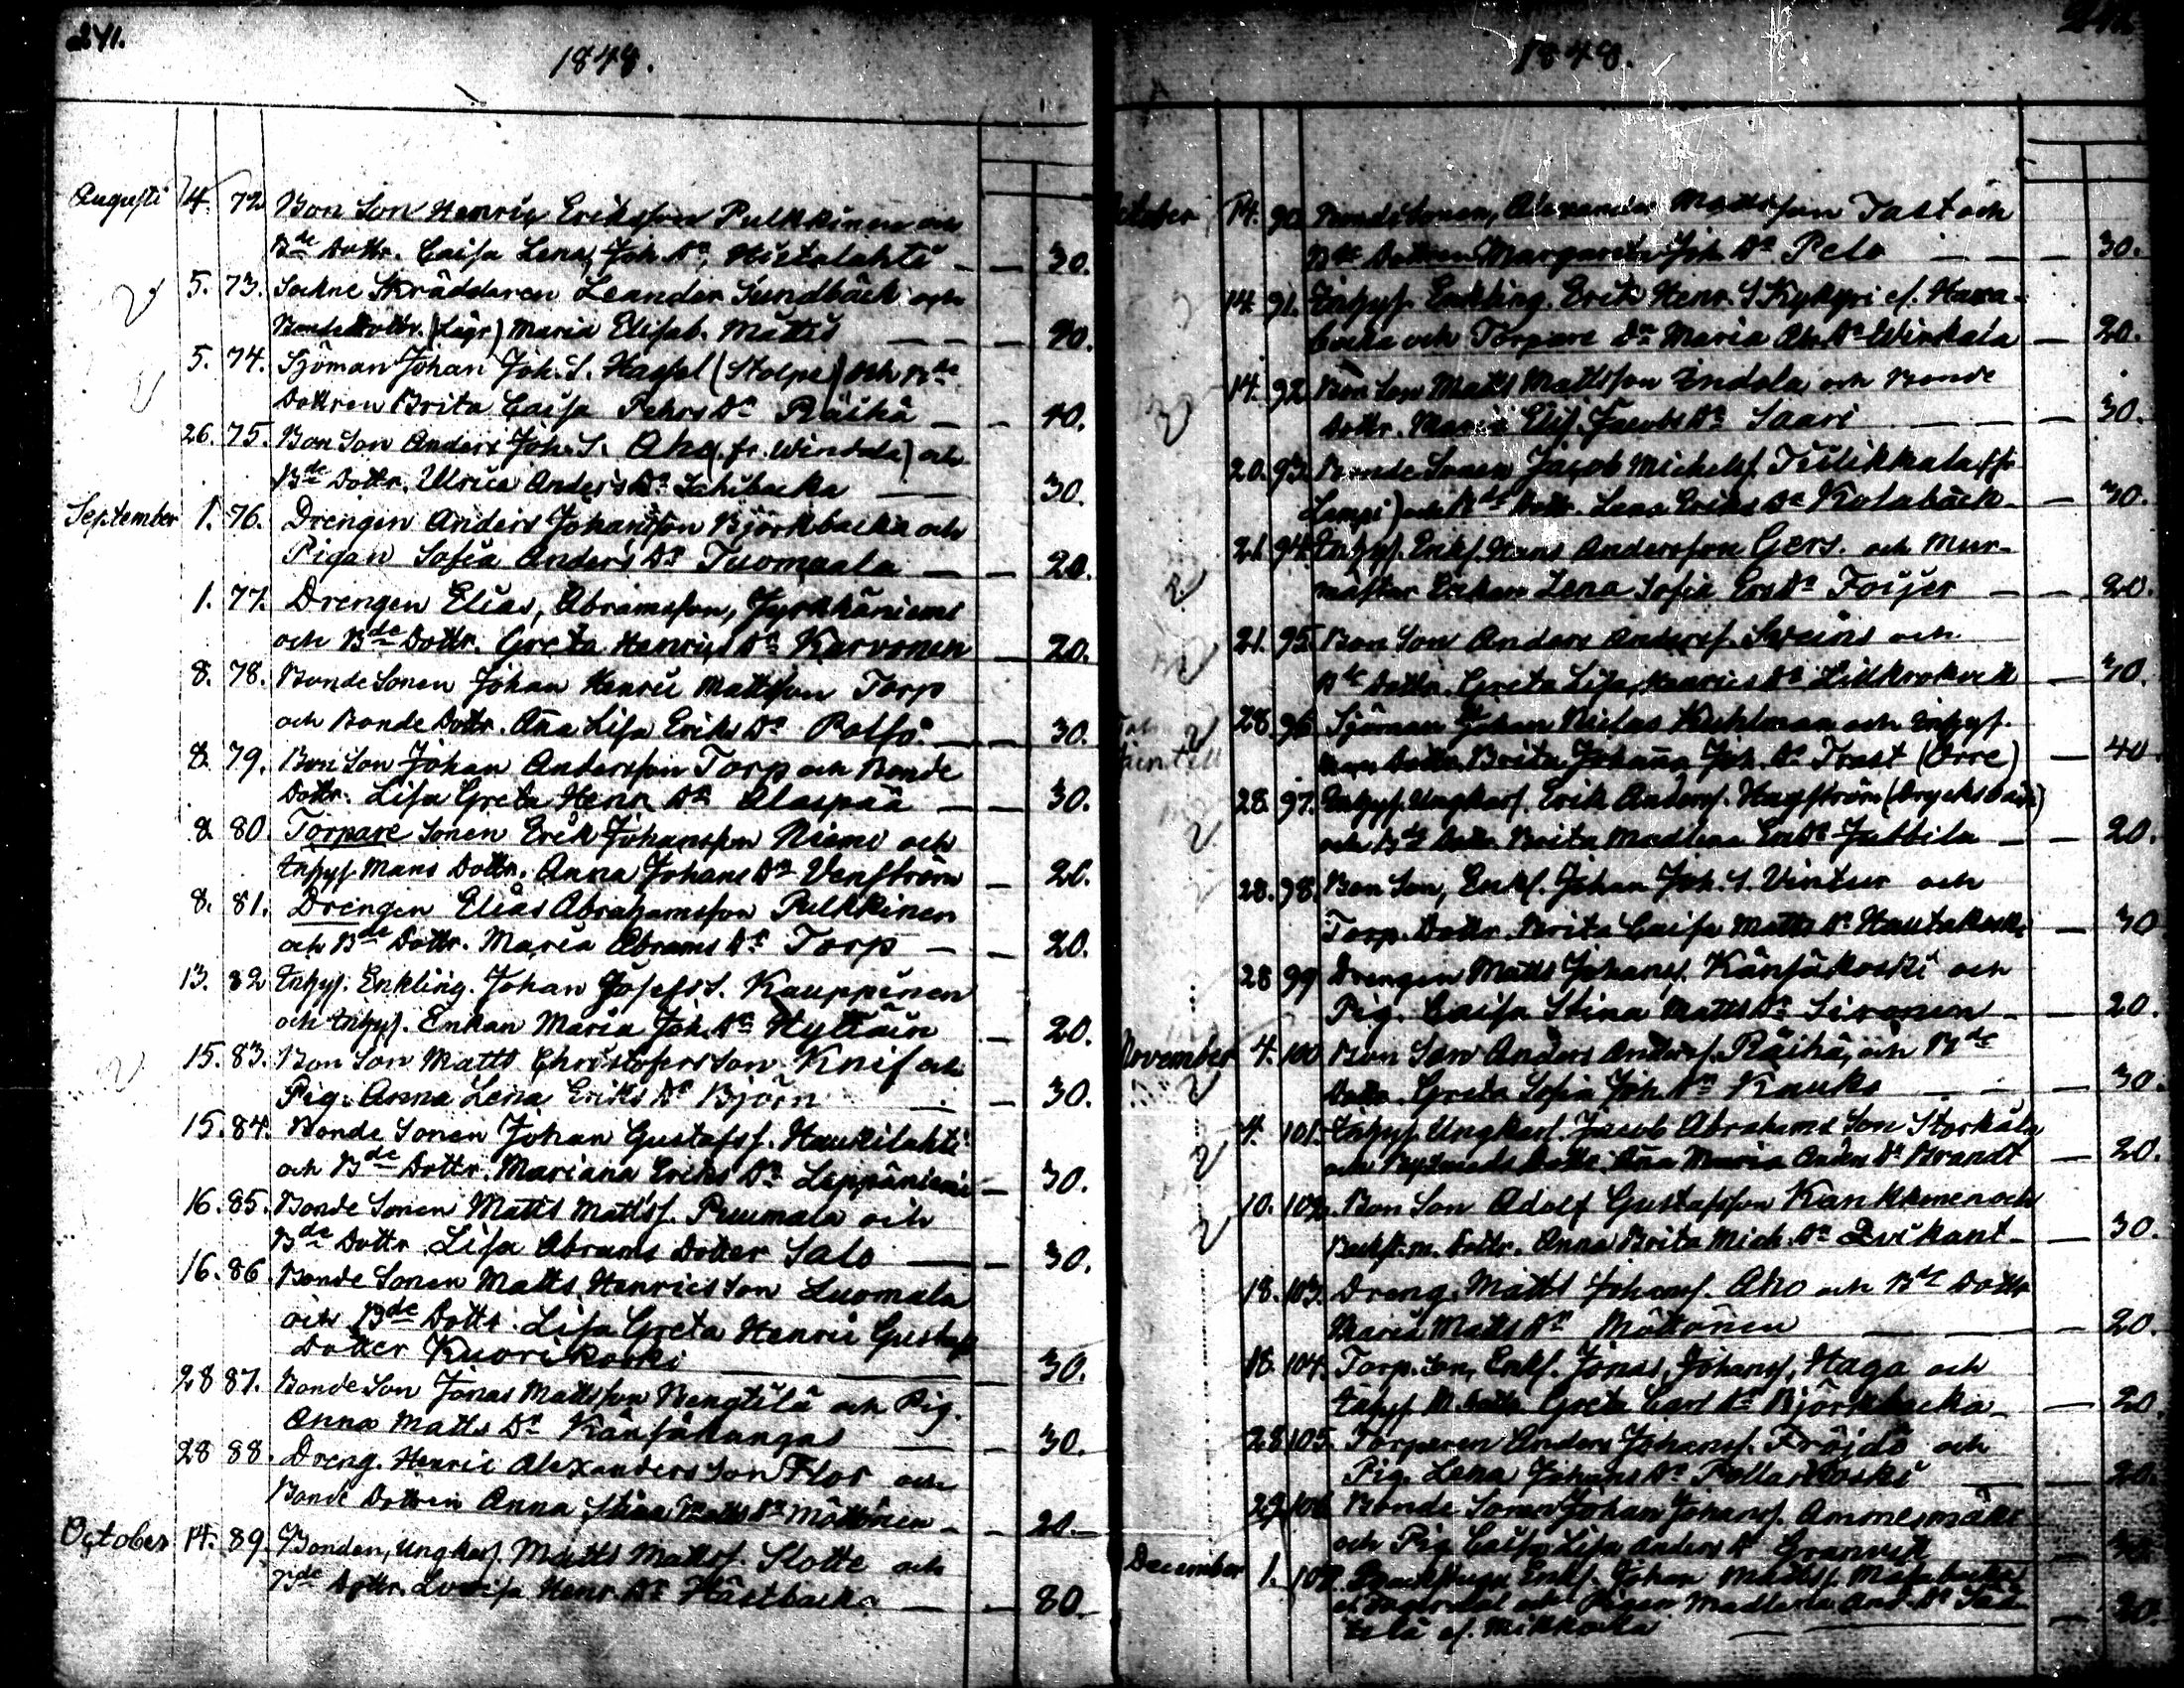 241.
1848.
Augusti 4. 72. Bon Son Henric Eriksson Pulkkinen och
Bde Dottr. Caisa Lena, Joh. Dr. Hietalahti — — 30.
5. 73. Sockne Skrädderen Leander Sundbäck och
Bonde Dottr. (Lägr) Maria Elisab. Matts — — 20.
5. 74. Sjöman Johan Joh. S. Hassel (Stolpe) och Bde
Dottren Brita Caisa Pehrs Dr Räihä — — 40.
26. 75. Bon Son Anders Joh. S. Aho (fr. Windala) och
Bde Dottr. Ulrica Anders Dr — 30.
September 1. 76. Drengen Anders Johansson Björkbacka och
Pigan Sofia Anders Dr Tuomaala — — 20.
1. 77. Drengen Elias, Abramsson, Jyrkkäniemi
och Bde Dottr. Greta Henrics Dr Karvonen — 20.
8. 78. Bonde Sonen Johan Henric Mattsson Torp
och Bonde Dottr. Aña Lisa Eriks Dr — — 30.
8. 79. Bon Son Johan Andersson Torp och Bonde
Dottr. Lisa Greta Henr. Dr Alaspää — — 30.
8. 80. Torpare Sonen Erik Johansson Niemi och
Inhys. Mans Dottr. Anna Johans Dr Venström — 20.
8. 81. Drengen Elias Abrahamsson Pulkkinen
och Bde Dottr. Maria Abrams Dr Torp — — 20.
13. 82 Inhys. Enkling. Johan Josefs S. Kauppinen
och Inhys. Enkan Maria Joh. Dr Hyttäin — 20.
15. 83. Bon Son Matts Christophers Son Knif och
Pig. Anna Lena Eriks Dr Björn — 30.
15. 84. Bonde Sonen Johan Gustafss. Haukilahti
och Bde Dottr. Mariana Eriks Dr Leppäniemi — 30.
16. 85. Bonde Sonen Matts Mattss. Puumala och
Bde Dottr Lisa Abrams Dotter Salo — — 30.
16. 86. Bonde Sonen Matts Henrics Son Luomala
och Bde Dottr. Lisa Greta Henric Gustafs
Dotter Kuorikoski — 30.
28 87. Bonde Son Jonas Mattsson Bengtilä och Pig.
Anna Matts Dr Känsäkangas — — 30.
28 88. Dreng. Henric Alexanders Son Flor och
Bonde Dottren Anna Stina Matts Dr Möttönen — — 20.
October 14. 89. Bonden, Ungkarl Matts Mattss. Slotte och
Bde Dottr. Lovisa Henr. Dr Hästbacka — — 80.
1848.
October 14. 90. Bonde Sonen, Alexander Mattsson Tast och
Bde Dottren Margareta Joh. Dr Pelo — — 30.
14. 91. Inhys. Enkling. Erik Henr. S Kykyri
och Torpare Dr Maria Abr. Dr Wirkala — 20.
14. 92 Bon Son Matts Mattsson Indola och Bonde
Dottr. Maria Elis. Jacobs Dr Saari — 30.
20. 93. Bonde Sonen Jacob Michelss. Tiilikkala (fr
Lampi) och Bde Dottr. Lena Eriks Dr Kolabäck — 30.
21. 94. Inhys. Enkl. Hans Andersson Gers. och Mur-
mästar Enkan Lena Sofia Ers Dr Foijer — 20.
21. 95. Bon Son Anders Anderss. Sweins och
Bde Dottr. Greta Lisa Henrics Dr — 30.
28. 96. Sjöman Johan Niclas Kuhlman och Inhys.
Dottr. Brita Johaña Joh. Dr Trast (Orre) — 40
28. 97. Inhys. Ungkarl. Erik Anderss. Hagström
och Bde Dottr. Brita Madlena Ers Dr Jubbila — — 20.
28. 98. Bon Son, Enkl. Johan Joh. S. Vintur och
Torp. Dottr. Brita Caisa Matts Dr Hautakoski — 30
28 99 Drengen Matts Johanss. Känsäkoski och
Pig. Caisa Stina Matts Dr Sironen — 20.
November 4. 100. Bon Son Anders Anderss. Räihä, och Bde
Dottr. Greta Sofia Joh. Dr Kauko — 30.
4. 101. Inhys. Ungkarl. Jacob Abrahams Son Storkåla
och Dottr. Aña Maria Anders Dr Brandt — 20.
10. 102. Bon Son Adolf Gustafsson Kankkunen och
Dottr. Anna Brita Mich. Dr Qvikant — 30.
18. 103. Dreng. Matts Johanss. Aho och Bde Dottr
Maria Matts Dr Möttönen — 20.
18. 104. Torp. Son, Enkl. Jonas, Johanss, Haga och
Inhys M. Dottr Greta Carl Dr Björkbacka — 20.
28. 105. Torparen Anders Johanss. Fröjdö och
Pig. Lena Johans Dr Pollarikoski — 20.
29. 106. Bonde Sonen Johan Johanss. Ammesmäki
och Pig Caisa Lisa Anders Dr Granvik — 30.
December 1. 107. Enkl. Johan Matts S.
och Pigan Madlena And. Dr
— 20.